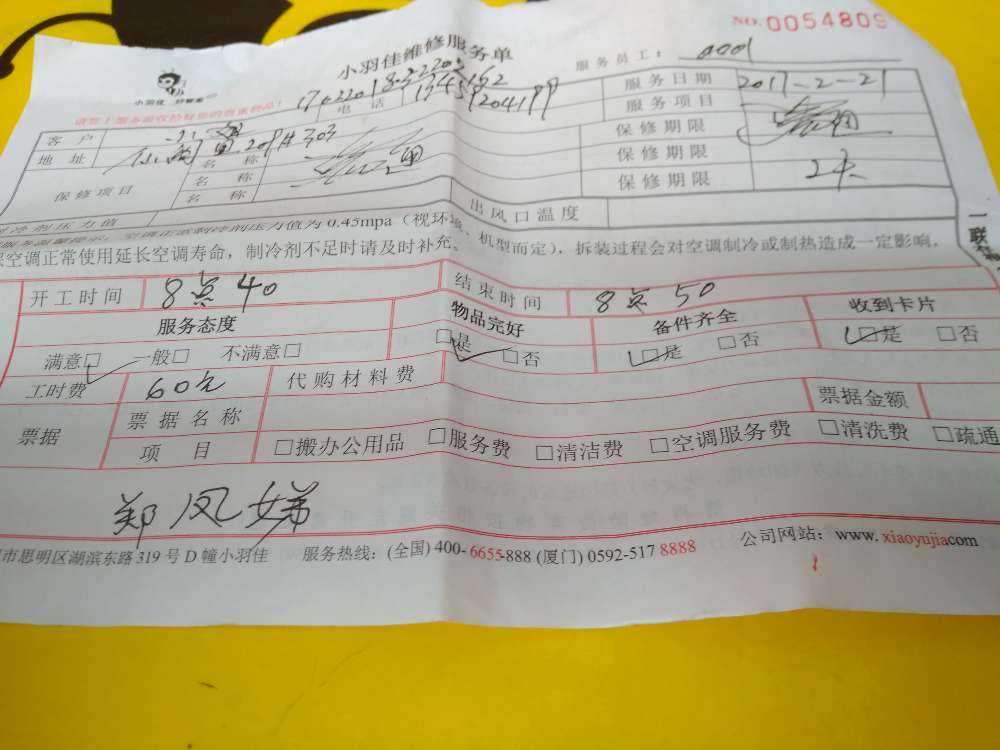 NO.0054809
小羽佳维修服务单
服务员工：
小羽佳 好管家
请您于服务前收拾好您的贵重物品！
客户 电话 服务日期 2017-2-21
地址 服务项目
保修项目 名称 保修期限
名称 保修期限
名称 保修期限
制冷剂压力值 出风口温度
服务温馨提示：空调正常制冷剂压力值为0.45mpa（视环境、机型而定），拆装过程会对空调制冷或制热造成一定影响，
保空调正常使用延长空调寿命，制冷剂不足时请及时补充。
一联
开工时间 8点40 结束时间 8点50
服务态度 物品完好 备件齐全 收到卡片
满意□ 一般□ 不满意□ □是 □否 □是 □否 □是 □否
工时费 60元 代购材料费
票据 票据名称 票据金额
项目 □搬办公用品 □服务费 □清洁费 □空调服务费 □清洗费 □疏通
郑凤娣
市思明区湖滨东路319号D幢小羽佳 服务热线：(全国) 400-6655-888 (厦门) 0592-517 8888 公司网站：www.xiaoyujia.com